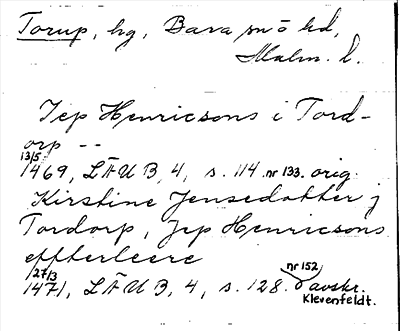 Torup, hg, Bara sn o hd,
Malm. l.
Jep Henricsons i Tord-
orp --
13/5
1469, LÄUB, 4, s. 114. nr 133. orig.
Kirstine Jensedotter j
Tordorp, Jep Henricsons
effterleere
27/3 nr 152
1471, LÄUB, 4, s. 128. avskr.
Klevenfeldt.